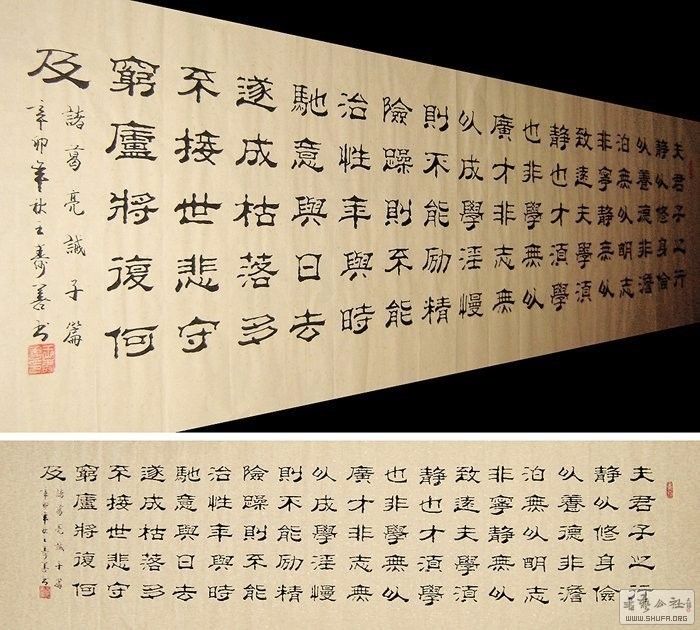 夫君子之行
静以修身儉
以養德非澹
泊無以明志
非寧静無以
致遠夫學須
静也才須學
也非學無以
廣才非志無
以成學淫慢
則不能励精
險躁則不能
治性年與時
馳意與日去
遂成枯落多
不接世悲守
窮廬將復何
及
諸葛亮誡子篇
辛卯年秋王壽善书
夫君子之行
静以修身儉
以養德非澹
泊無以明志
非寧静無以
致遠夫學須
静也才須學
也非學無以
廣才非志無
以成學淫慢
則不能励精
險躁則不能
治性年與時
馳意與日去
遂成枯落多
不接世悲守
窮廬將復何
及
諸葛亮誡子篇
辛卯年秋王壽善书
書法公社
WWW.SHUFA.ORG